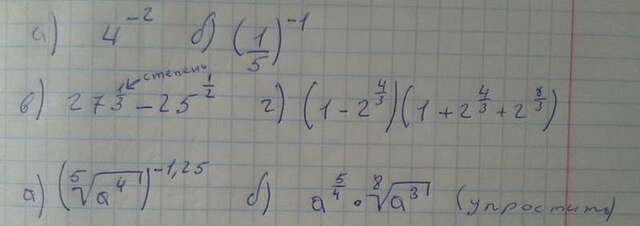 а) 4^{-2} б) (1/5)^{-1}
в) 27^{1/3} ← степень - 25^{1/2} г) (1 - 2^{4/3})(1 + 2^{4/3} + 2^{8/3})
а) (⁵√a⁴)^{-1,25} б) a^{5/4} · ⁸√a³ (упростить)